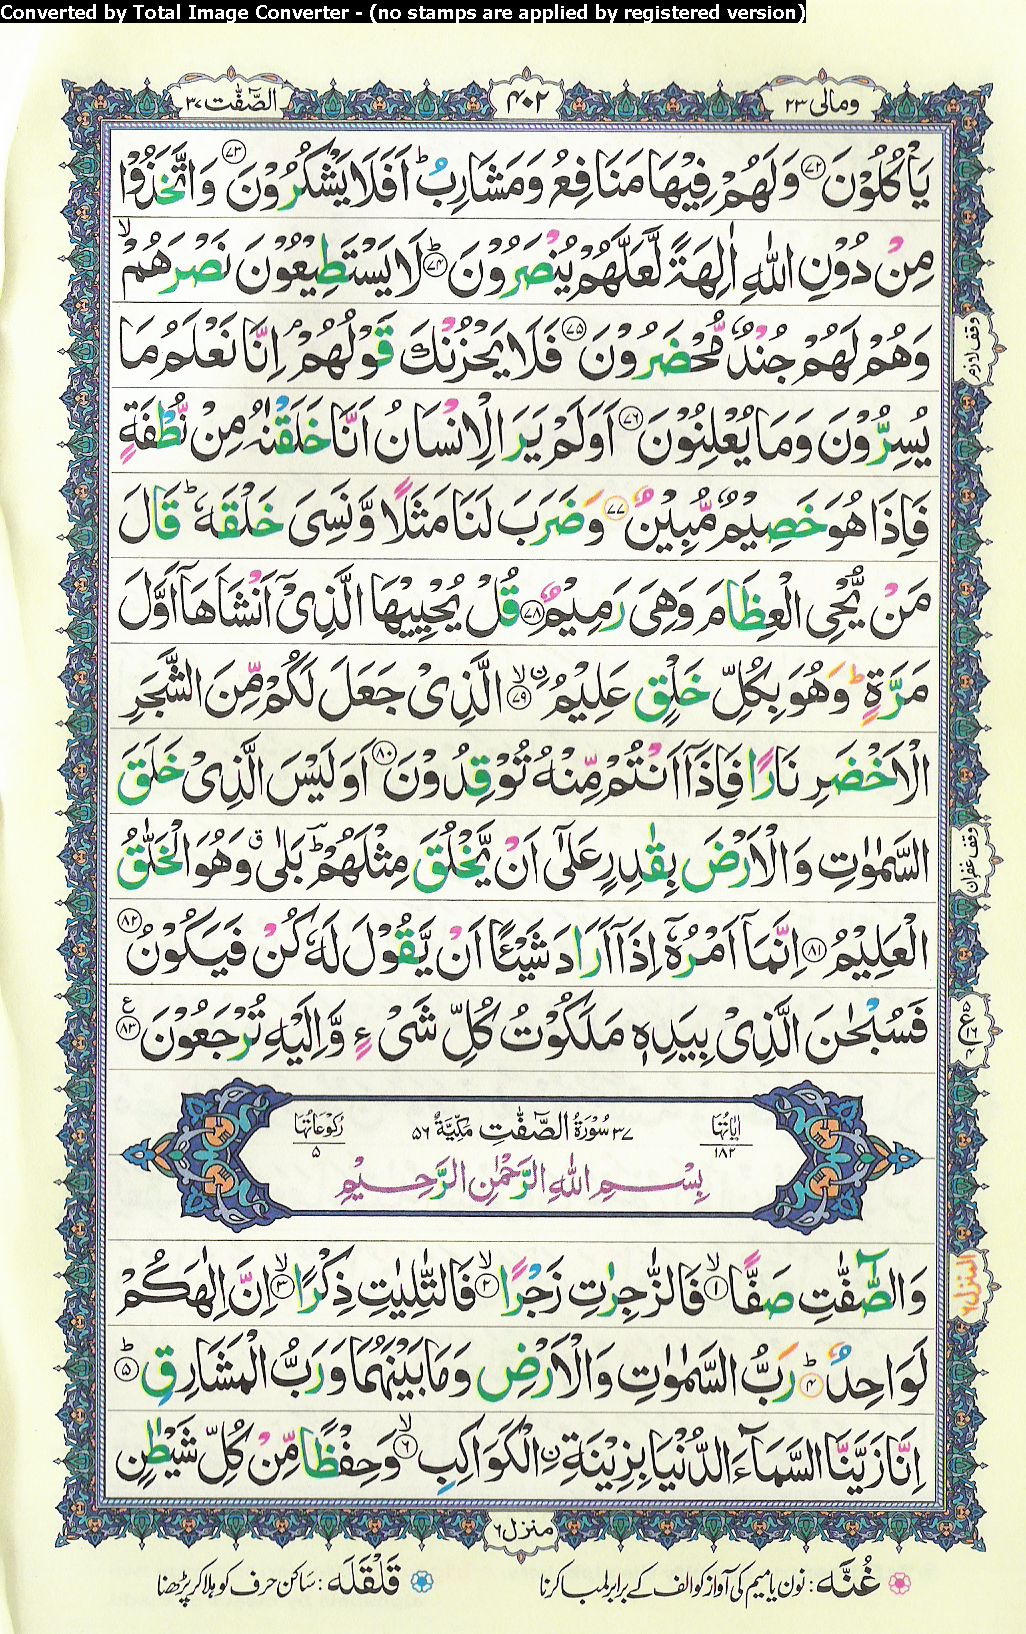 Converted by Total Image Converter - (no stamps are applied by registered version)
ومالی ٢٣
۴۰۲
الصّٰٓفّٰت ٣٧
يَاْكُلُوْنَ ﴿٧٢﴾ وَلَهُمْ فِيْهَا مَنَافِعُ وَمَشَارِبُ ؕ اَفَلَا يَشْكُرُوْنَ ﴿٧٣﴾ وَاتَّخَذُوْا
مِنْ دُوْنِ اللّٰهِ اٰلِهَةً لَّعَلَّهُمْ يُنْصَرُوْنَ ؕ﴿٧٤﴾ لَا يَسْتَطِيْعُوْنَ نَصْرَهُمْ ۙ
وَهُمْ لَهُمْ جُنْدٌ مُّحْضَرُوْنَ ﴿٧٥﴾ فَلَا يَحْزُنْكَ قَوْلُهُمْ ۘ اِنَّا نَعْلَمُ مَا
يُسِرُّوْنَ وَمَا يُعْلِنُوْنَ ﴿٧٦﴾ اَوَلَمْ يَرَ الْاِنْسَانُ اَنَّا خَلَقْنٰهُ مِنْ نُّطْفَةٍ
فَاِذَا هُوَ خَصِيْمٌ مُّبِيْنٌ ﴿٧٧﴾ وَضَرَبَ لَنَا مَثَلًا وَّنَسِيَ خَلْقَهٗ ؕ قَالَ
مَنْ يُّحْيِ الْعِظَامَ وَهِيَ رَمِيْمٌ ﴿٧٨﴾ قُلْ يُحْيِيْهَا الَّذِيْٓ اَنْشَاَهَآ اَوَّلَ
مَرَّةٍ ؕ وَهُوَ بِكُلِّ خَلْقٍ عَلِيْمُ ۙ﴿٧٩﴾ ۨ الَّذِيْ جَعَلَ لَكُمْ مِّنَ الشَّجَرِ
الْاَخْضَرِ نَارًا فَاِذَآ اَنْتُمْ مِّنْهُ تُوْقِدُوْنَ ﴿٨٠﴾ اَوَلَيْسَ الَّذِيْ خَلَقَ
السَّمٰوٰتِ وَالْاَرْضَ بِقٰدِرٍ عَلٰٓى اَنْ يَّخْلُقَ مِثْلَهُمْ ؕ بَلٰى ۗ وَهُوَ الْخَلّٰقُ
الْعَلِيْمُ ﴿٨١﴾ اِنَّمَآ اَمْرُهٗٓ اِذَآ اَرَادَ شَيْـًٔا اَنْ يَّقُوْلَ لَهٗ كُنْ فَيَكُوْنُ ﴿٨٢﴾
فَسُبْحٰنَ الَّذِيْ بِيَدِهٖ مَلَكُوْتُ كُلِّ شَيْءٍ وَّاِلَيْهِ تُرْجَعُوْنَ ﴿٨٣﴾ ع
وقف لازم
وقف غفران
اٰيَاتُهَا ١٨٢
٣٧ سُوْرَةُ الصّٰٓفّٰتِ مَكِّيَّةٌ ٥٦
رُكُوْعَاتُهَا ٥
بِسْمِ اللّٰهِ الرَّحْمٰنِ الرَّحِيْمِ
وَالصّٰٓفّٰتِ صَفًّا ۙ﴿١﴾ فَالزّٰجِرٰتِ زَجْرًا ۙ﴿٢﴾ فَالتّٰلِيٰتِ ذِكْرًا ۙ﴿٣﴾ اِنَّ اِلٰهَكُمْ
لَوَاحِدٌ ؕ﴿٤﴾ رَبُّ السَّمٰوٰتِ وَالْاَرْضِ وَمَا بَيْنَهُمَا وَرَبُّ الْمَشَارِقِ ؕ﴿٥﴾
اِنَّا زَيَّنَّا السَّمَآءَ الدُّنْيَا بِزِيْنَةِ ۨ الْكَوَاكِبِ ۙ﴿٦﴾ وَحِفْظًا مِّنْ كُلِّ شَيْطٰنٍ
المنزل ٦
منزل ٦
غُنَّه : نون یا میم کی آواز کو الف کے برابر لمبا کرنا
قَلْقَلَه : ساکن حرف کو ہلا کر پڑھنا